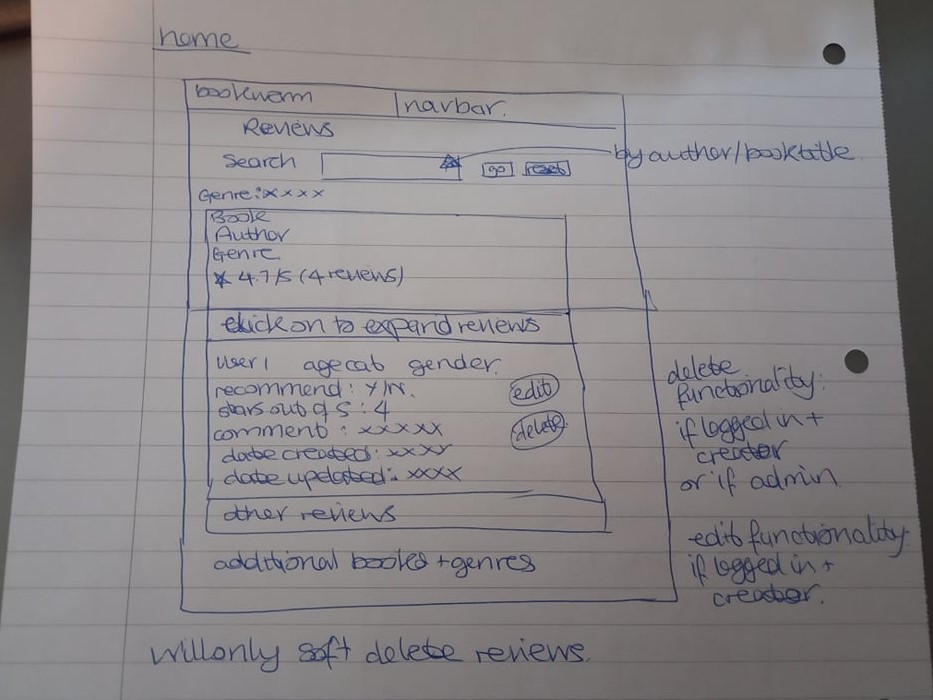 home
bookworm navbar.
Reviews
Search go reset by author/booktitle
Genre: xxxx
Book
Author
Genre
* 4.7/5 (4 reviews)
click on to expand reviews
user1 agecat gender.
recommend: Y/N. edit
stars out of 5 : 4
comment : xxxxx delete
date created: xxxx
date updated: xxxx
other reviews
additional books + genres
delete
functionality:
if logged in +
creator
or if admin
edit functionality
if logged in +
creator.
will only soft delete reviews.